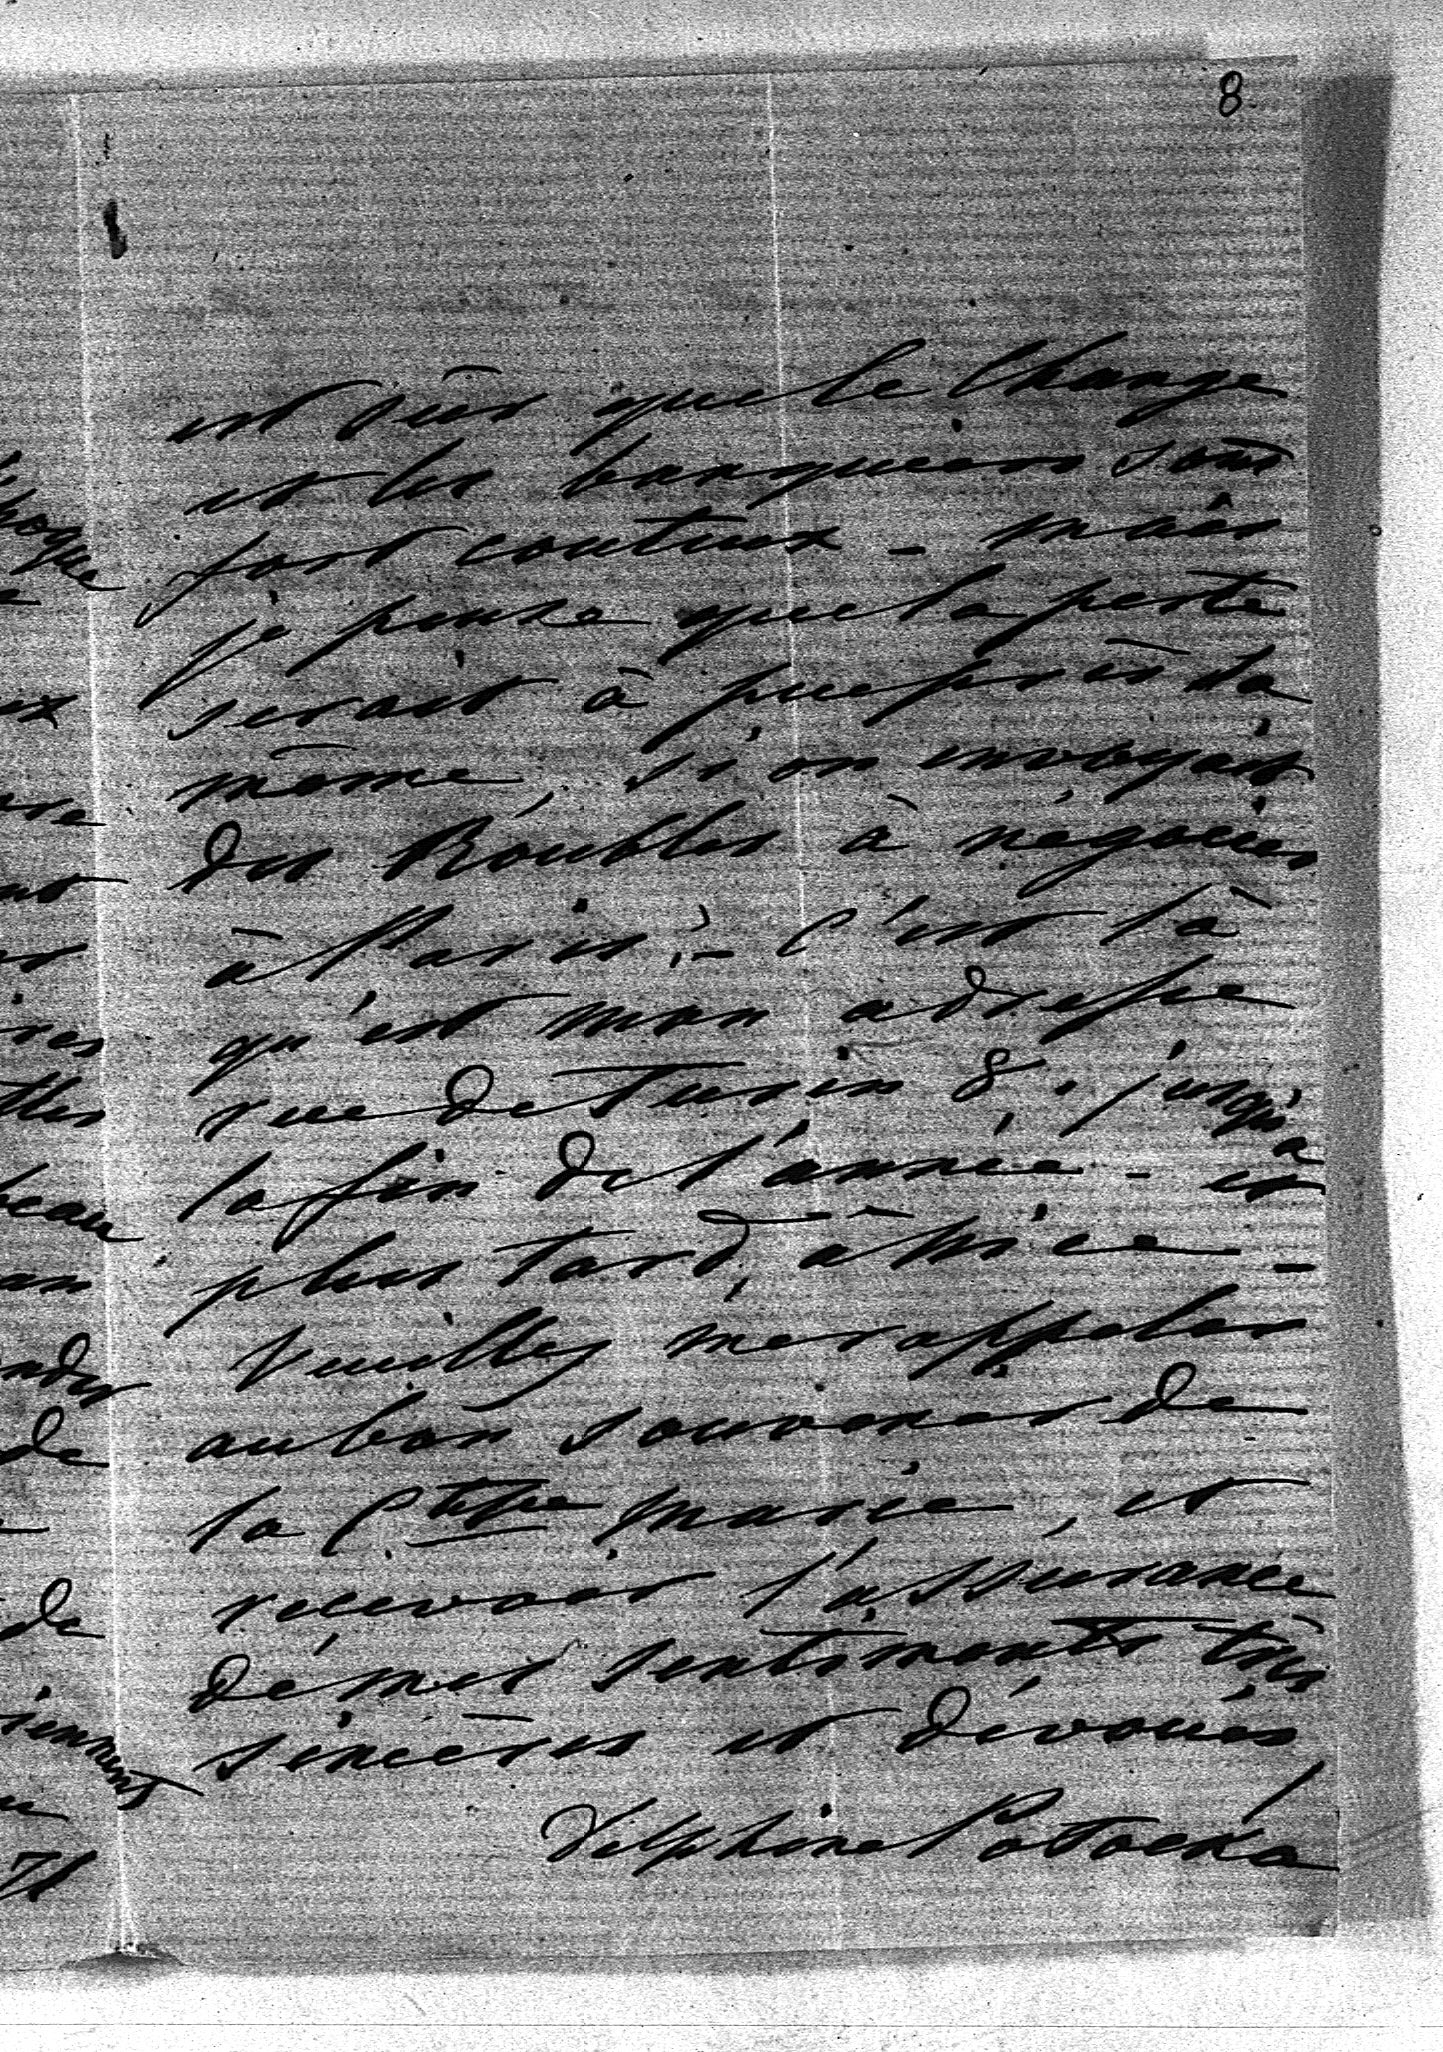 8
est sûr que le Change
et les banquiers sont
fort couteux - mais
je pense que la perte
serait à peu près la
même, si on envoyait
des Roubles à négocier
à Paris ; - C'est là
qu'est mon adresse
rue de Turin 8. jusqu'à
la fin de l'année - et
plus tard, à Nice -
Veuillez me rappeler
au bon souvenir de
la Ctesse Marie, et
recevoir l'assurance
de mes sentiments très
sincères et dévoués
Delphine Potocka